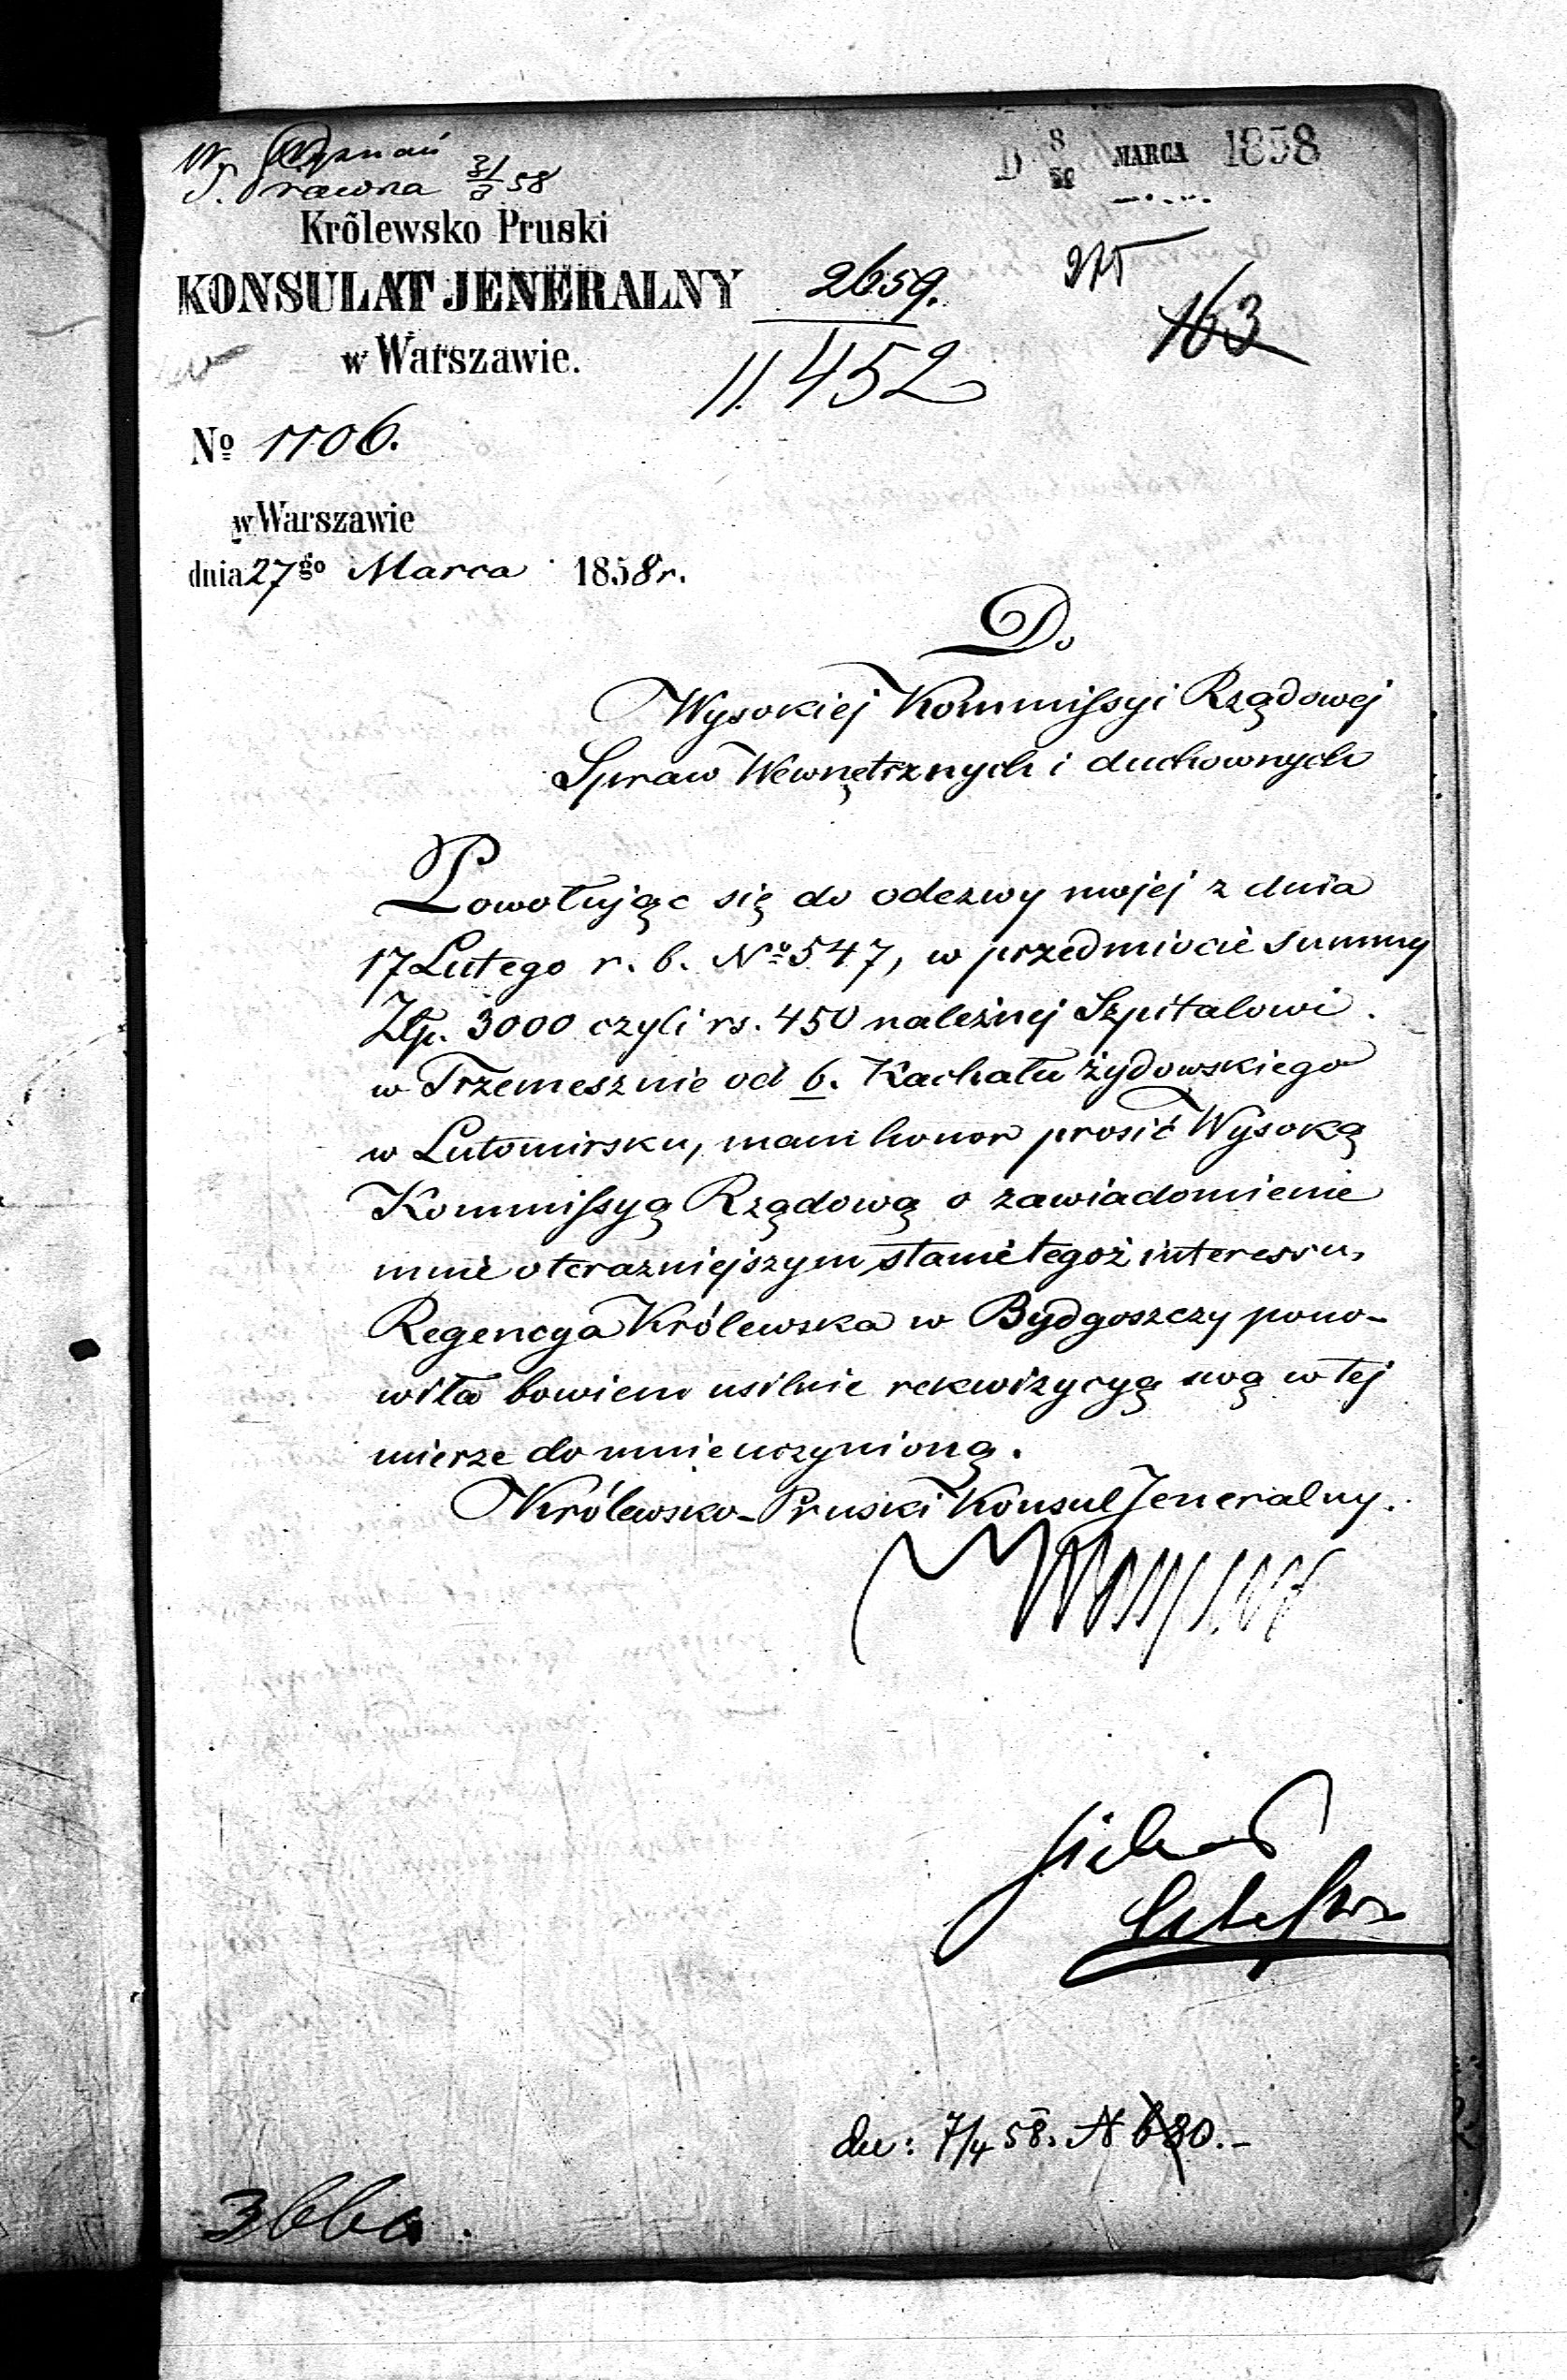 W. Wyznań
S. Prawna 31/3 58
D 8 MARCA 1858
Królewsko Pruski
KONSULAT JENERALNY
w Warszawie.
2659.
11452
275
163
No 1106.
w Warszawie
dnia 27go Marca 1858 r.
Do
Wysokiej Kommissyi Rządowej
Spraw Wewnętrznych i duchownych
Powołując się do odezwy mojej z dnia
17 Lutego r. b. No 547, w przedmiocie summy
Złp. 3000 czyli rs. 450 należnej Szpitalowi
w Trzemesznie od b. Kachału żydowskiego
w Lutomirsku, mam honor prosić Wysoką
Kommissyą Rządową o zawiadomienie
mnie o terazniejszym stanie tegoż interessu,
Regencya Królewska w Bydgoszczy pono-
wiła bowiem usilnie rekwizycyą swą w tej
mierze do mnie uczynioną.
Królewsko-Pruski Konsul Jeneralny.
du: 7/4 58. N 630.-